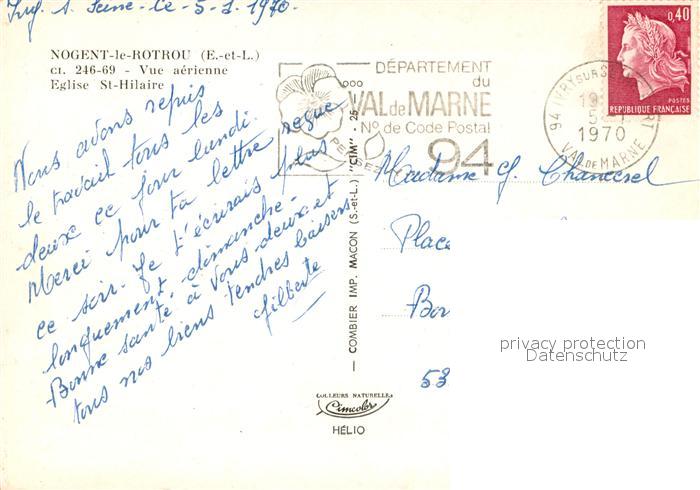 Ivry s. Seine le 5-1-1970.
NOGENT-le-ROTROU (E.-et-L.)
CI. 246-69 - Vue aérienne
Eglise St-Hilaire
Nous avons repris
le travail tous les
deux ce jour lundi.
Merci pour ta lettre reçue
ce soir. Je t'écrirais plus
longuement, dimanche.
Bonne santé à vous deux et
tous nos biens tendres baisers
Gilberte
COMBIER IMP. MACON (S.-et-L.) "CIM"
COULEURS NATURELLES
Cimcolor
HÉLIO
DÉPARTEMENT
du
VAL de MARNE
No. de Code Postal
94
PENSEZ
0,40
POSTES
REPUBLIQUE FRANÇAISE
94 IVRY SUR
5-1
1970
VAL-DE-MARNE
Madame J.
Place
Bor
53
privacy protection
Datenschutz